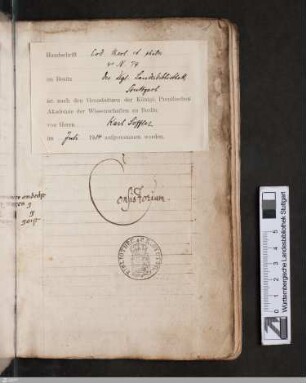 Handschrift Cod. theol. et philos.
4° N. 74
im Besitz der kgl. Landesbibliothek
Stuttgart
ist nach den Grundsätzen der Königl. Preußischen
Akademie der Wissenschaften zu Berlin
von Herrn Karl Löffler
im Juli aufgenommen worden.
Consistorium.
0 1 2 3 4 5
Württembergische Landesbibliothek Stuttgart